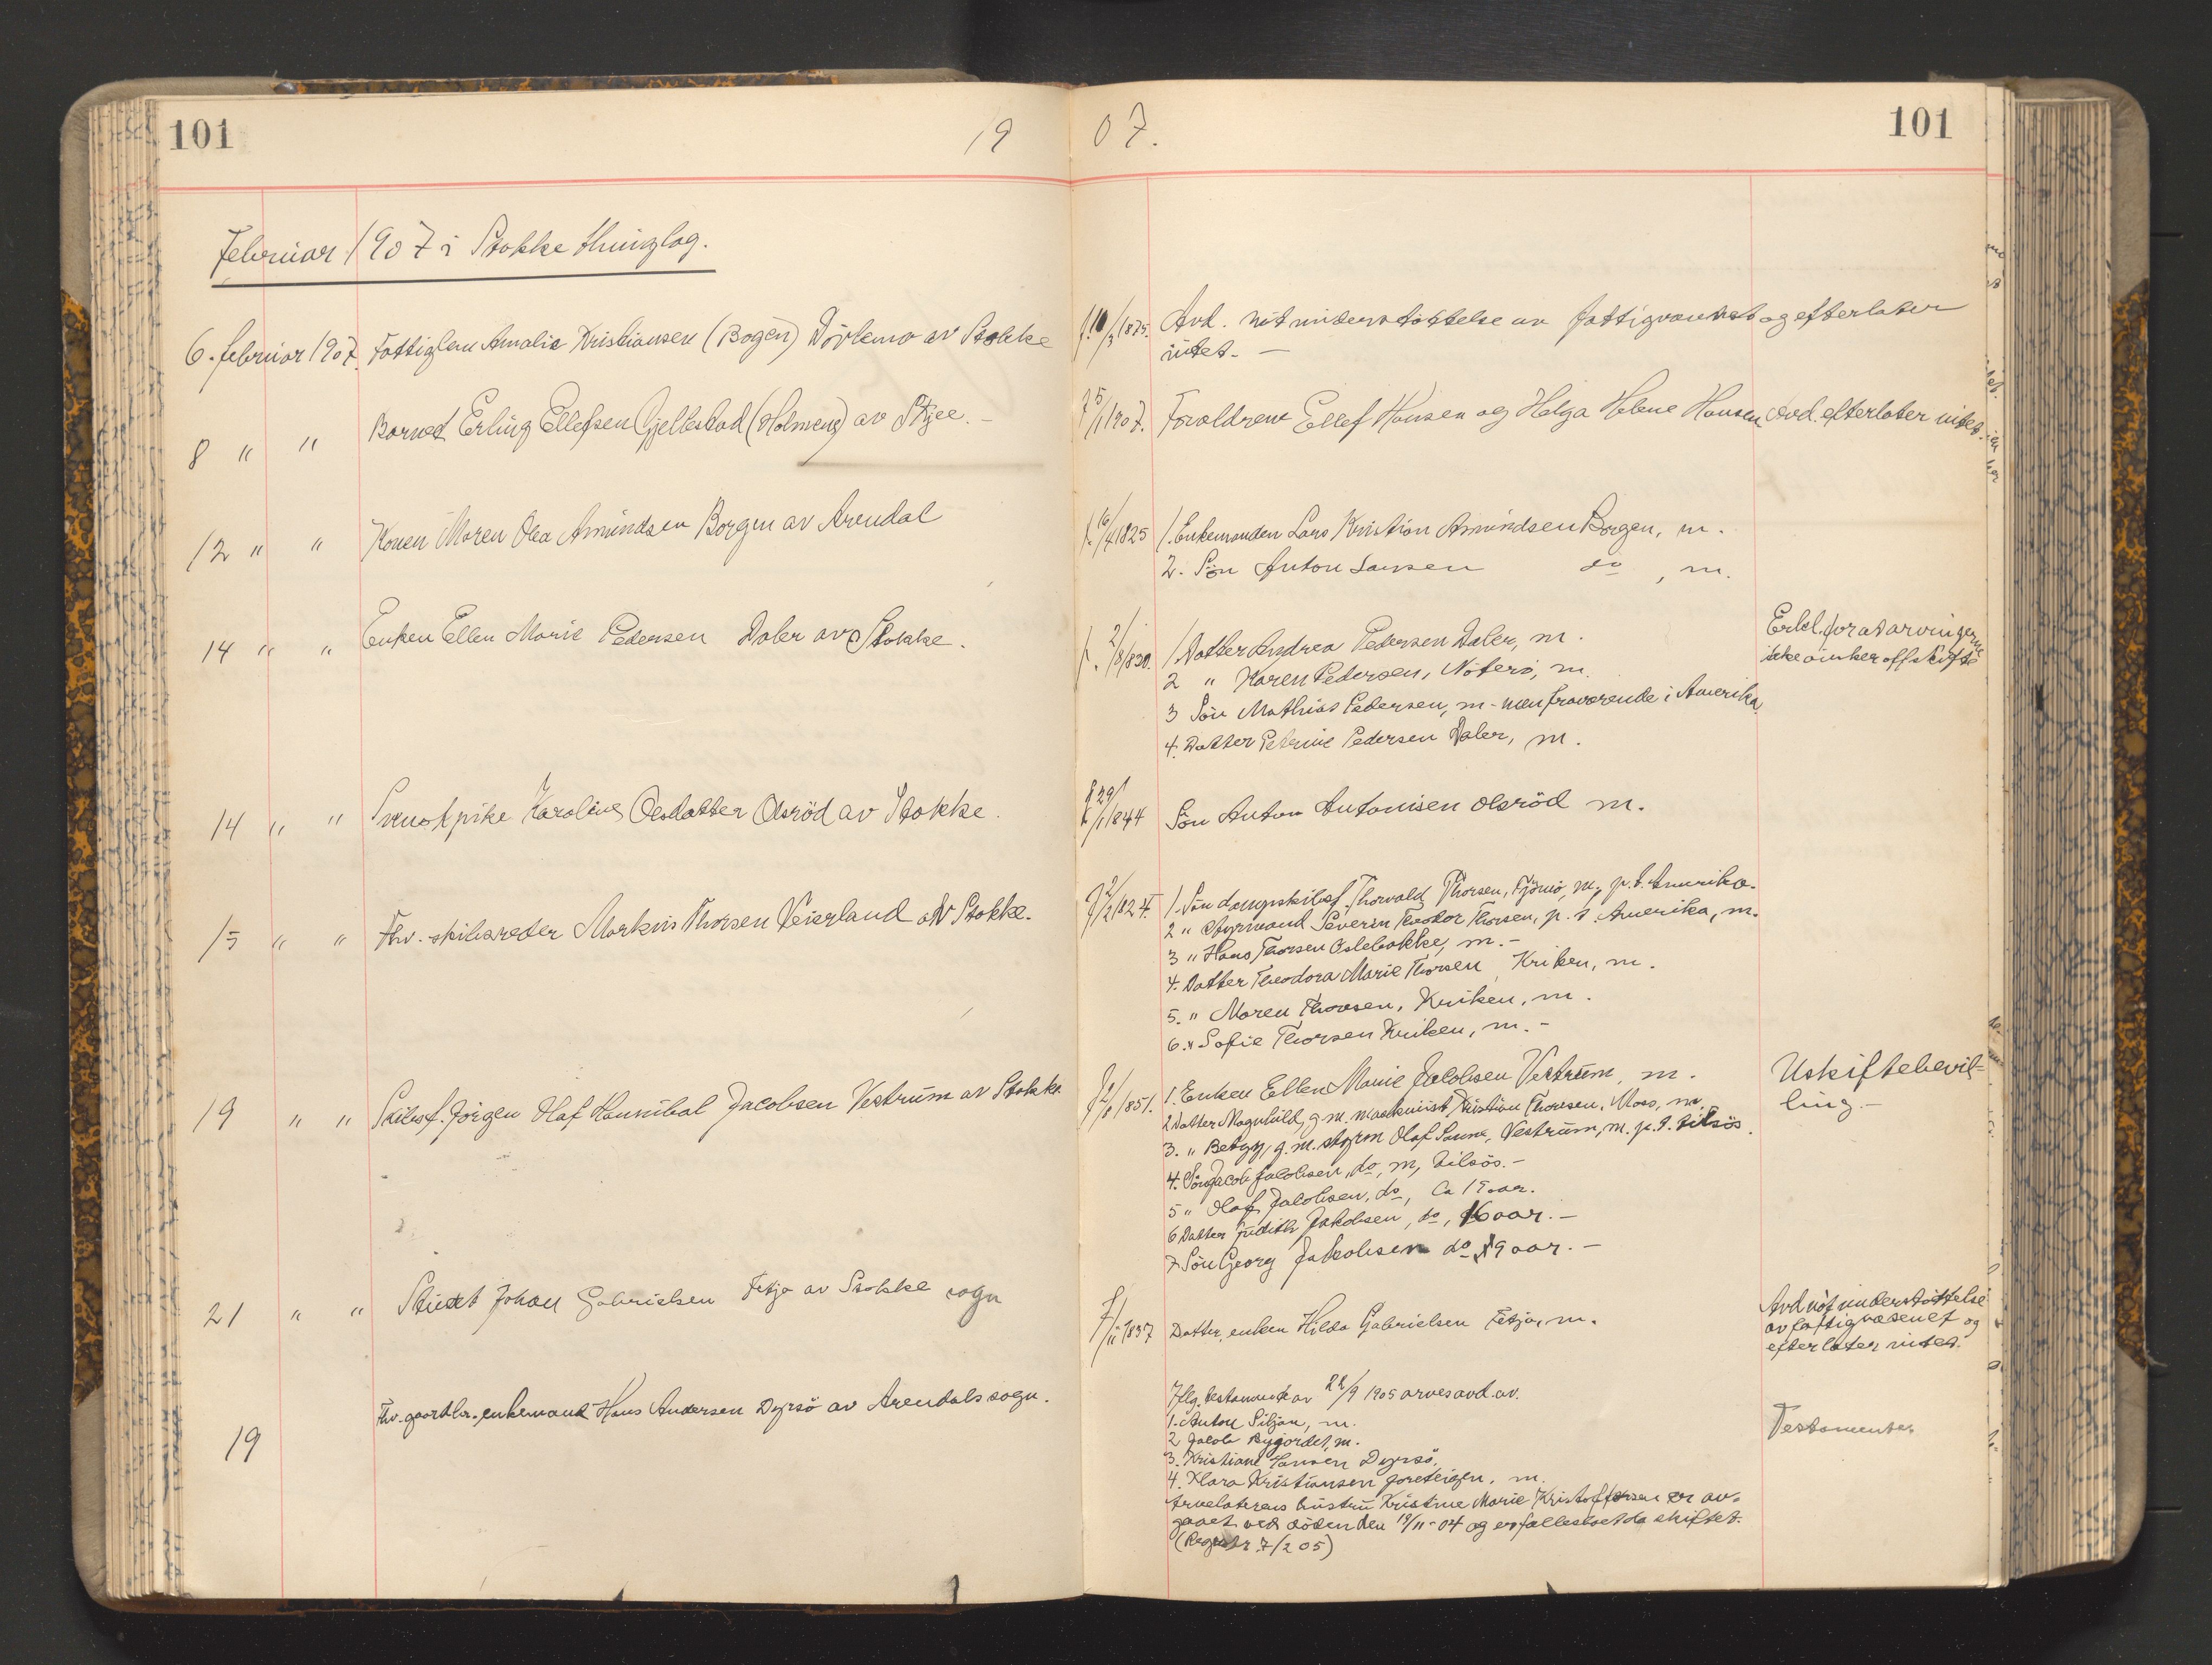 101
19
07.
101
Februar 1907 i Stokke thinglag.
6. februar 1907. Fattiglem Amalie Kristiansen (Bogen) av Stokke
f. 10/3 1875. Avd. nöt understöttelse av fattigvæsenet og efterlater
intet. —
8 " " Barnet Erling Ellefsen Gjellestad (Holmeng) av Skjee. —
f 5/1 1907. Forældrene Ellef Hansen og Helga Helene Hansen Avd. efterlater intet.
12 " " Konen Maren Olea Amundsen Borgen av Arendal
f. 16/4 1825 1. Enkemanden Lars Kristian Amundsen Borgen, m.
2. Sön Anton Larsen do, m.
14 " " Enken Ellen Marie Pedersen Daler av Stokke.
f. 2/8 1830. 1 Datter Andrea Pedersen Daler, m.
Erkl. for at arvingerne
ikke önsker off skifte
2 " Karen Pedersen, Nöterö, m.
3 Sön Mathias Pedersen, m - men fraværende i Amerika
4. Datter Petrine Pedersen Daler, m.
14 " " Pike Karoline Olsdatter Olsröd av Stokke.
f 29/1 1844 Sön Anton Antonisen Olsröd m.
15 " " Fhv. skibsreder Markus Thorsen Veierland av Stokke.
f 2/2 1824. 1. Sön dampskibsf. Thorvald Thorsen, Tjömö, m., p. t. Amerika.
2 " Styrmand Severin Teodor Thorsen, p. t. Amerika, m.
3 " Hans Thorsen Oslebakke, m. —
4. Datter Theodora Marie Thorsen Kriken, m.
5. " Maren Thorsen, Kriken, m.
6. " Sofie Thorsen Kriken, m. —
19 " " Skibsf. Jörgen Olaf Hannibal Jacobsen Vestrum av Stokke.
1851. 1. Enken Ellen Marie Jacobsen Vestrum, m.
Uskiftebevil-
ling. —
2 Datter Magnhild, g. m. maskinist Kristian Thorsen, Moss, m.
3. " Betzy, g. m. styrm Olaf Sanne, Vestrum, m. p. t. tilsös.
4. Sön Jacob Jacobsen, do, m, tilsös. —
5 " Olaf Jacobsen, do, ca 19 aar.
6 Datter Judith Jakobsen, do, 16 aar. —
7 Sön Georg Jakobsen do 9 aar. —
21 " " Johan Gabrielsen Fetja av Stokke sogn
f /11 1837 Datter, enken Hilda Gabrielsen Fetja, m.
Avd nöt understöttelse
av fattigvæsenet og
efterlater intet.
19 Fhv. gaardbr., enkemand Hans Andersen Dyrsö av Arendals sogn.
Iflg. testamente av 22/9 1905 arves avd. av.
1. Anton Siljan, m.
Testamente
2 Jacob Bygördet, m.
3. Kristiane Hansen Dyrsö.
4. Klara Kristiansen Foreteigen, m.
Arvelaterens hustru Kristine Marie Kristoffersen er av-
gaaet ved döden den 19/11 - 04 og er fællesboet da skiftet.
(Registr 7/2 05)